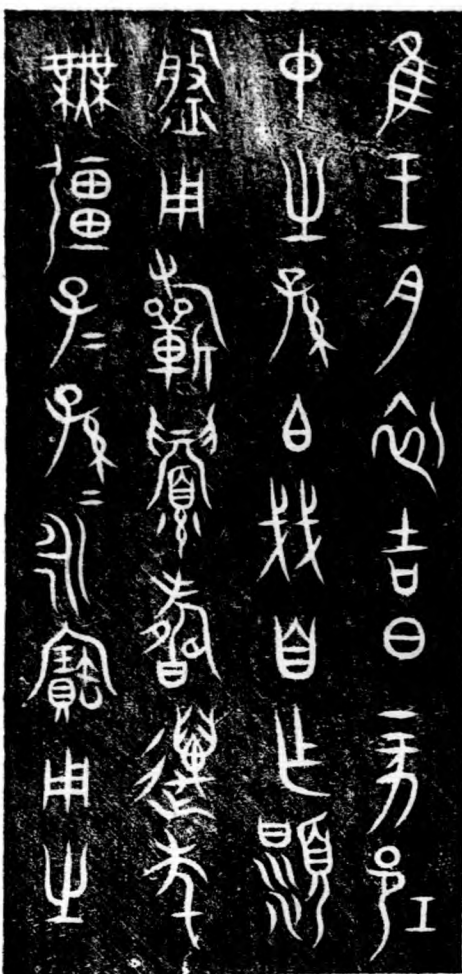 隹王月初吉日亥邛
中之孫白戔自乍頮
盤用祈眉壽萬年
無彊子=孫=永寶用之